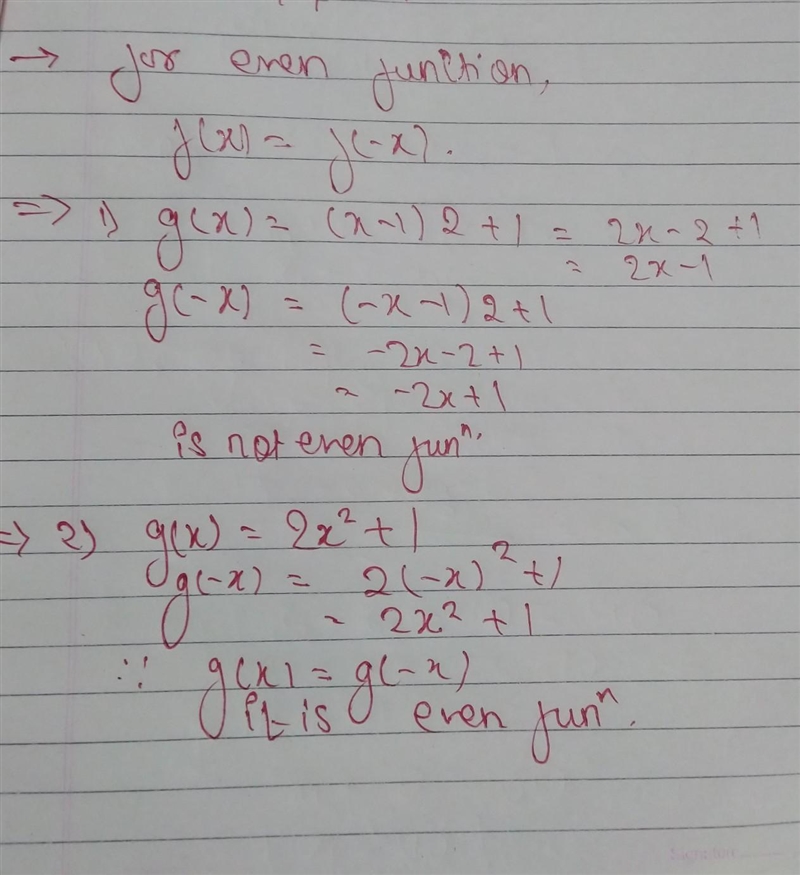 → for even function,
f(x) = f(-x).
⇒ 1) g(x) = (x-1) 2 + 1 = 2x - 2 + 1
= 2x - 1
g(-x) = (-x-1) 2 + 1
= -2x - 2 + 1
= -2x + 1
is not even funⁿ.
⇒ 2) g(x) = 2x² + 1
g(-x) = 2(-x)² + 1
= 2x² + 1
∵ g(x) = g(-x)
it is even funⁿ.